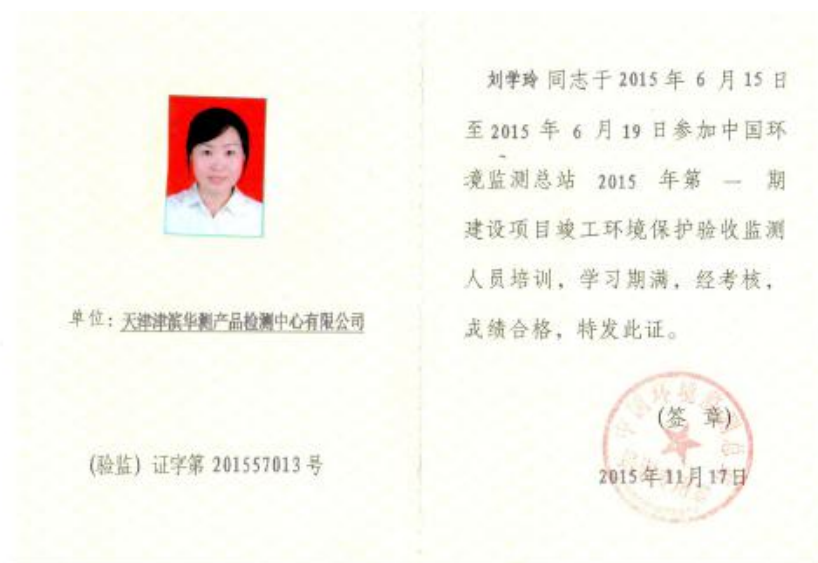 单位：天津津滨华测产品检测中心有限公司
(验监) 证字第 201557013 号
刘学玲 同志于 2015 年 6 月 15 日
至 2015 年 6 月 19 日参加中国环
境监测总站 2015 年第 一 期
建设项目竣工环境保护验收监测
人员培训，学习期满，经考核，
成绩合格，特发此证。
(签 章)
2015年11月17日